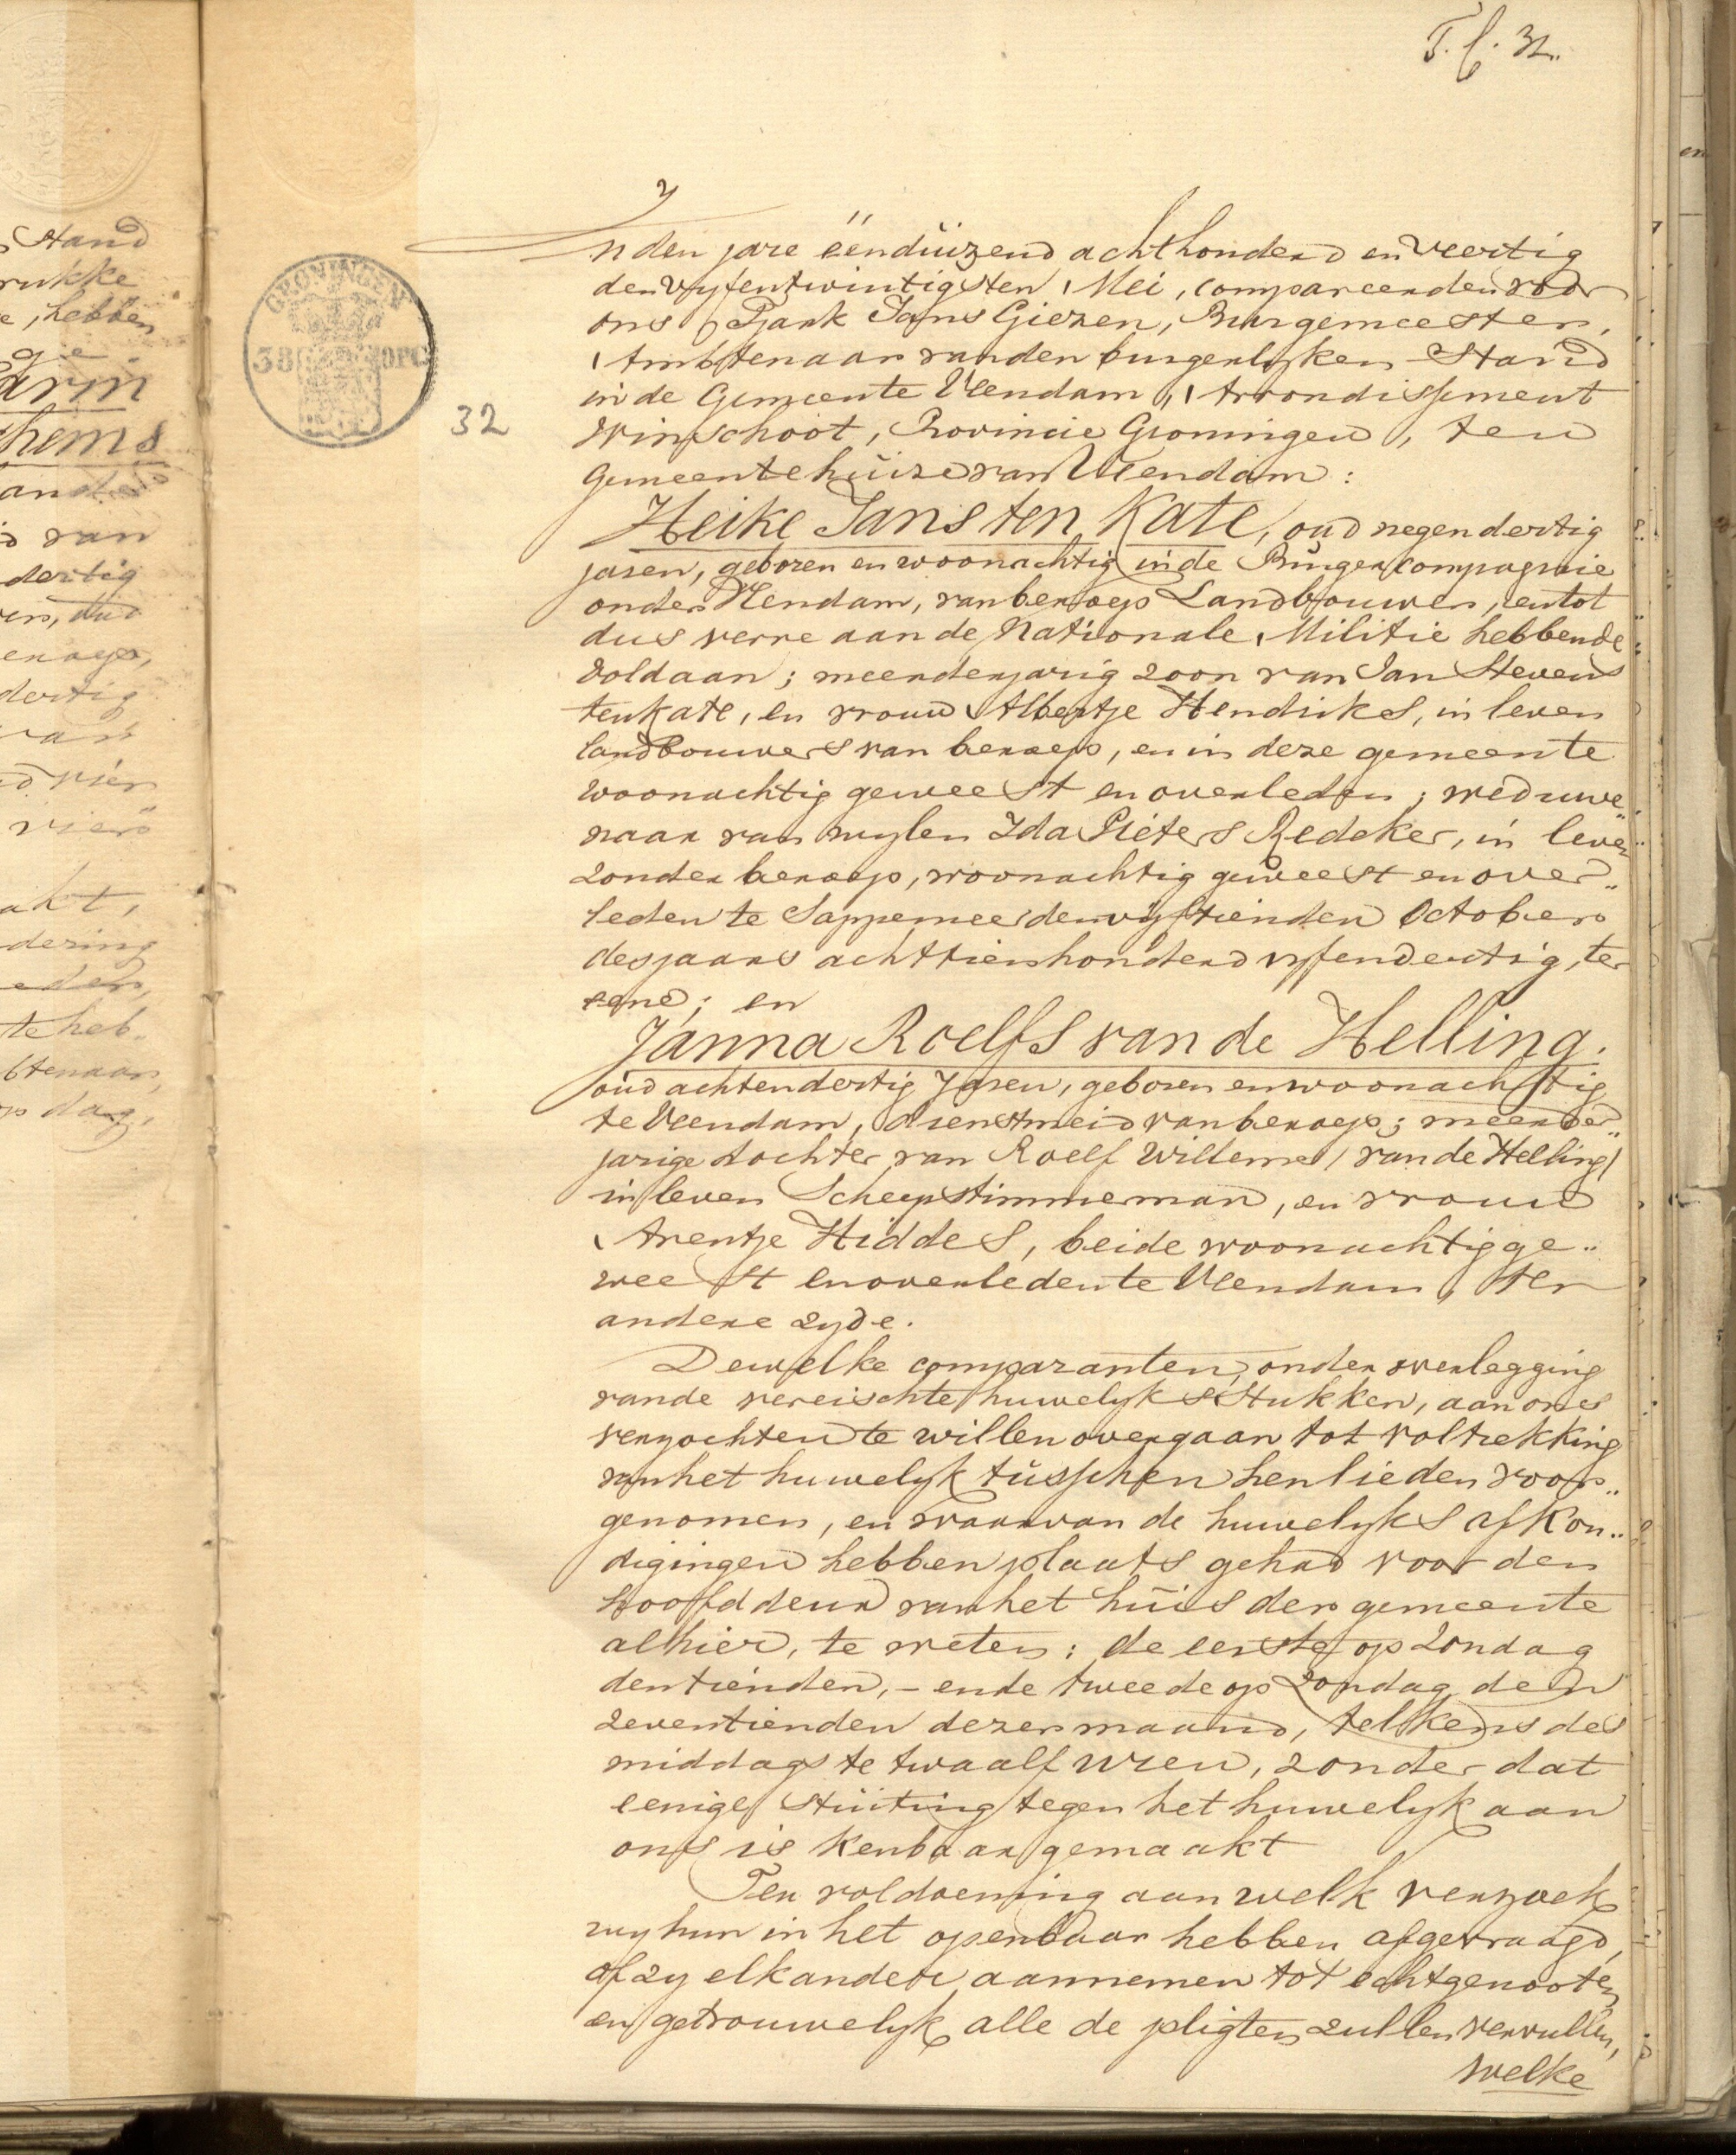 T. f. 32.
In den jare ëenduizend achthonderd en veertig
den vyfentwintigsten Mei, compareerden voor
ons Tjaak Jans Giezen, Burgemeester,
Ambtenaar van den burgerlyken Stand
in de Gemeente Veendam, Arrondissement
Winschoot, Provincie Groningen, ten
Gemeentehuize van Veendam:
Heike Jans ten Kate, oud negendertig
jaren, geboren en woonachtig in de Burgercompagnie
onder Veendam, van beroep Landbouwer, en tot
dus verre aan de Nationale Militie hebbende
voldaan; meerderjarig zoon van Jan Stevens
ten Kate, en vrouw Albertje Hendriks, in leven
landbouwers van beroep, en in deze gemeente
woonachtig geweest en overleden; weduwe„
naar van wylen Ida Pieters Redeker, in leven
zonder beroep, woonachtig geweest en over„
leden te Sappemeer den vyftienden October
des jaars achttienhonderd vyfendertig, ter
eene; en
Janna Roelfs van de Helling,
oud achtendertig Jaren, geboren en woonachtig
te Veendam, dienstmeid van beroep; meerder„
jarige dochter van Roelf Willems / van de Helling /
in leven Scheepstimmerman, en vrouw
Arentje Hiddes, beide woonachtig ge„
weest en overleden te Veendam, ter
andere zyde.
Dewelke comparanten, onder overlegging
van de vereischte huwelyksstukken, aan ons
verzochten te willen overgaan tot voltrekking
van het huwelyk tusschen henlieden voor„
genomen, en waarvan de huwelyks afkon„
digingen hebben plaats gehad voor den
hoofddeur van het huis der gemeente
alhier, te weten: de eerste op Zondag
den tienden, – en de tweede op Zondag den
zeventienden dezer maand, telkens des
middags te twaalf uren, zonder dat
eenige stuiting tegen het huwelyk aan
ons is kenbaar gemaakt
Ter voldoening aan welk verzoek
wy hun in het openbaar hebben afgevraagd,
of zy elkander aannemen tot echtgenooten
en getrouwelyk alle de pligten zullen vervullen,
welke
32
GRONINGEN
38
OPC
Stand
rukke
e, hebben
arm
hems
van
dertig
dertig
vier
akt,
dering
te heb-
btenaar,
dag,